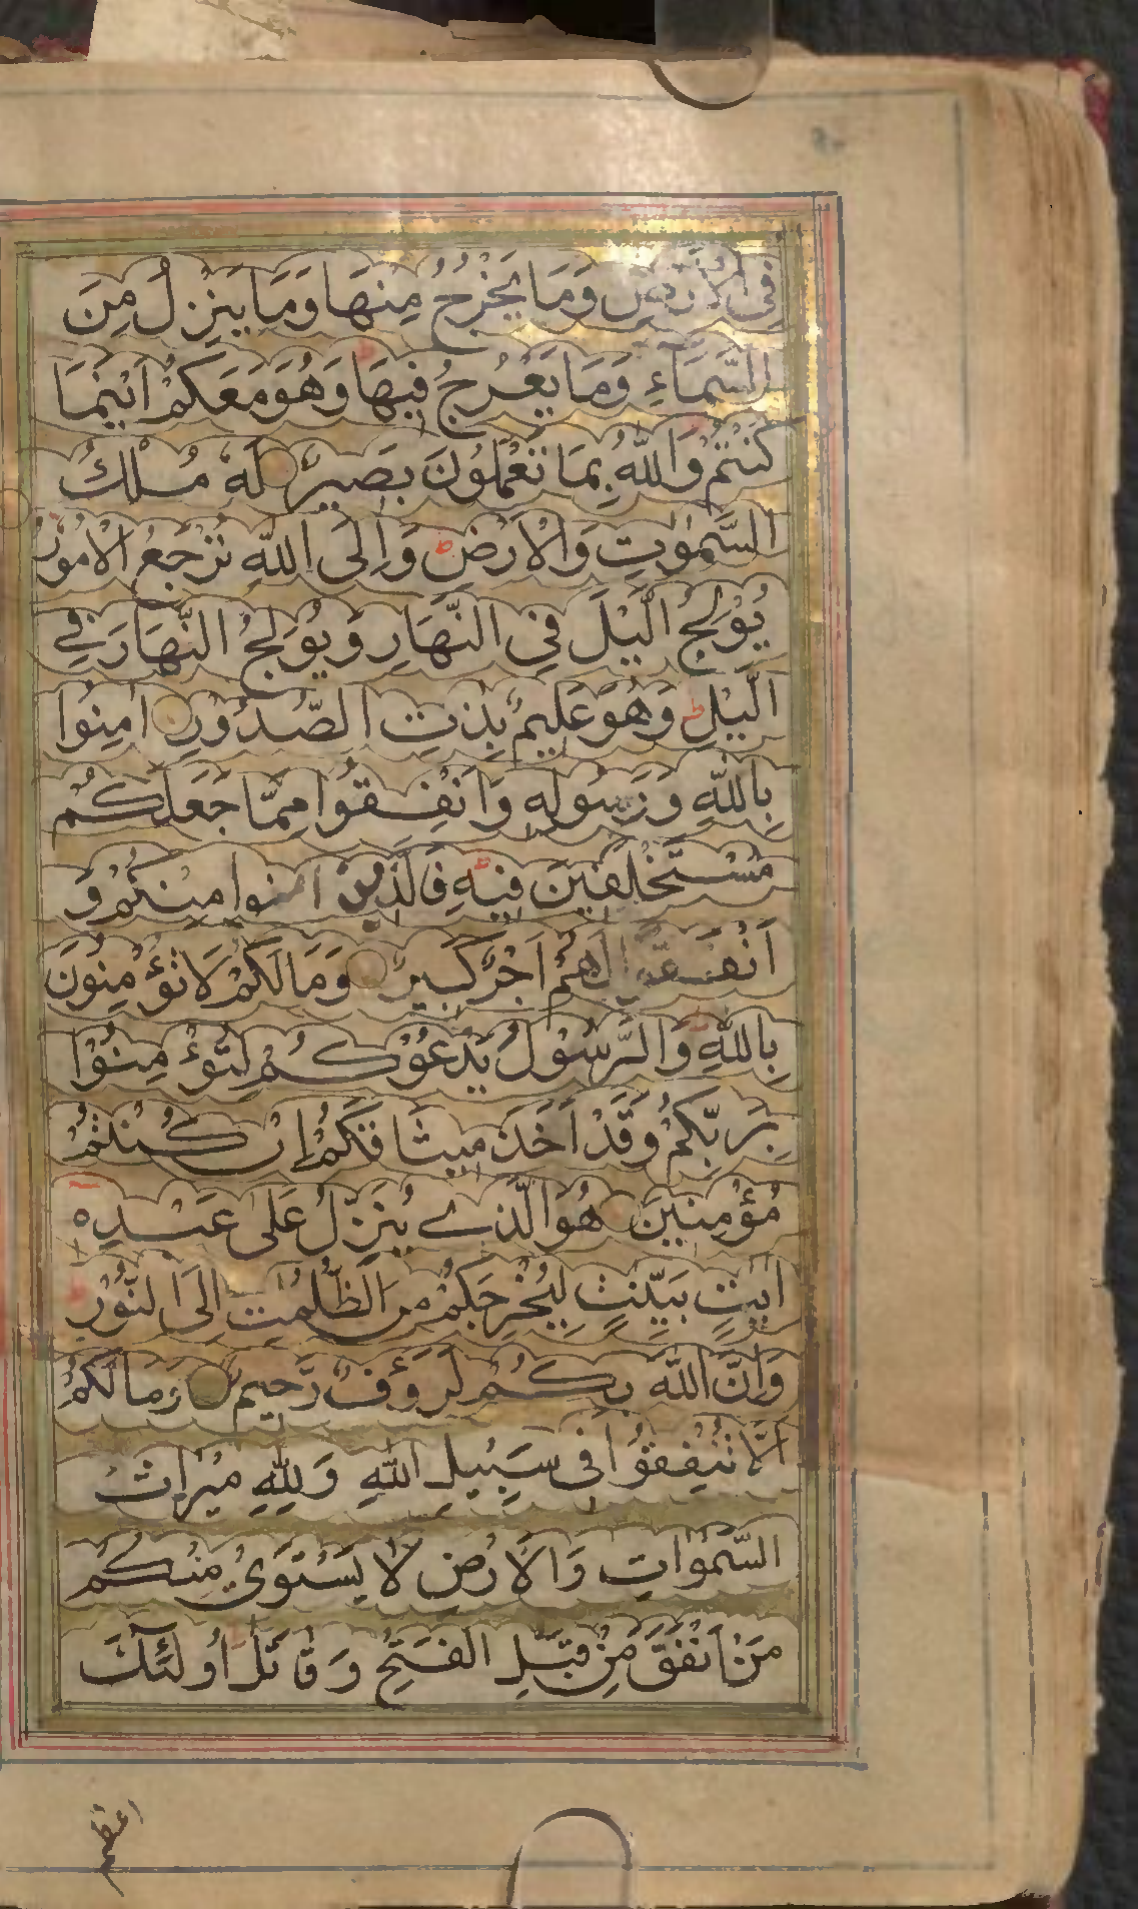 فِى الْاَرْضِ وَمَا يَخْرُجُ مِنْهَا وَمَا يَنْزِلُ مِنَ
السَّمَآءِ وَمَا يَعْرُجُ فِيهَا وَهُوَ مَعَكُمْ اَيْنَمَا
كُنْتُمْ وَاللّٰهُ بِمَا تَعْمَلُوْنَ بَصِيرٌ لَهٗ مُلْكُ
السَّمٰوٰتِ وَالْاَرْضِ ط وَاِلَى اللّٰهِ تُرْجَعُ الْاُمُوْرُ
يُوْلِجُ الَّيْلَ فِى النَّهَارِ وَيُوْلِجُ النَّهَارَ فِے
الَّيْلِ ط وَهُوَ عَلِيمٌ بِذٰتِ الصُّدُوْرِ اٰمِنُوا
بِاللّٰهِ وَرَسُولِهٖ وَاَنْفِقُوا مِمَّا جَعَلَكُمْ
مُسْتَخْلَفِيْنَ فِيْهِ ط فَالَّذِيْنَ اٰمَنُوا مِنْكُمْ وَ
اَنْفَقُوا لَهُمْ اَجْرٌ كَبِيرٌ وَمَا لَكُمْ لَا تُؤْمِنُوْنَ
بِاللّٰهِ وَالرَّسُوْلُ يَدْعُوْكُمْ لِتُؤْمِنُوْا
بِرَبِّكُمْ وَقَدْ اَخَذَ مِيثَاقَكُمْ اِنْ كُنْتُمْ
مُؤْمِنِيْنَ هُوَ الَّذِے يُنَزِّلُ عَلٰى عَبْدِهٖ
اٰيٰتٍ بَيِّنٰتٍ لِيُخْرِجَكُمْ مِنَ الظُّلُمٰتِ اِلَى النُّوْرِ ط
وَاِنَّ اللّٰهَ بِكُمْ لَرَؤُفٌ رَّحِيمٌ وَمَا لَكُمْ
اَلَّا تُنْفِقُوْا فِى سَبِيْلِ اللّٰهِ وَلِلّٰهِ مِيْرَاثُ
السَّمٰوَاتِ وَالْاَرْضِ لَا يَسْتَوِىْ مِنْكُمْ
مَنْ اَنْفَقَ مِنْ قَبْلِ الْفَتْحِ وَقَاتَلَ اُولٰئِكَ
اعظم